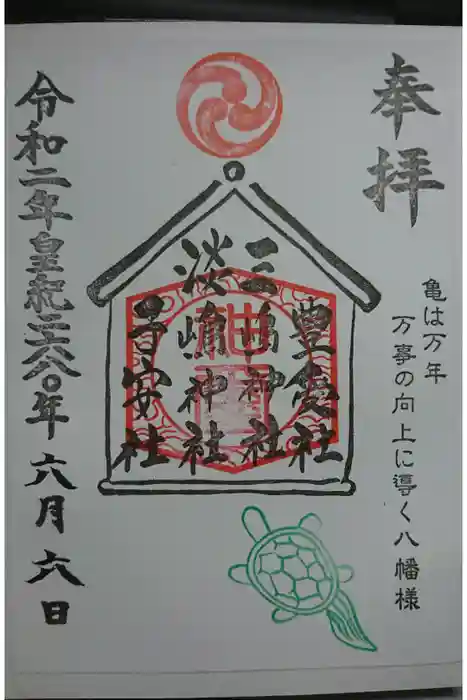 奉拝
亀は万年
万事の向上に導く八幡様
豊受社
三嶋神社
淡嶋神社
子安社
令和二年皇紀二六八〇年六月六日